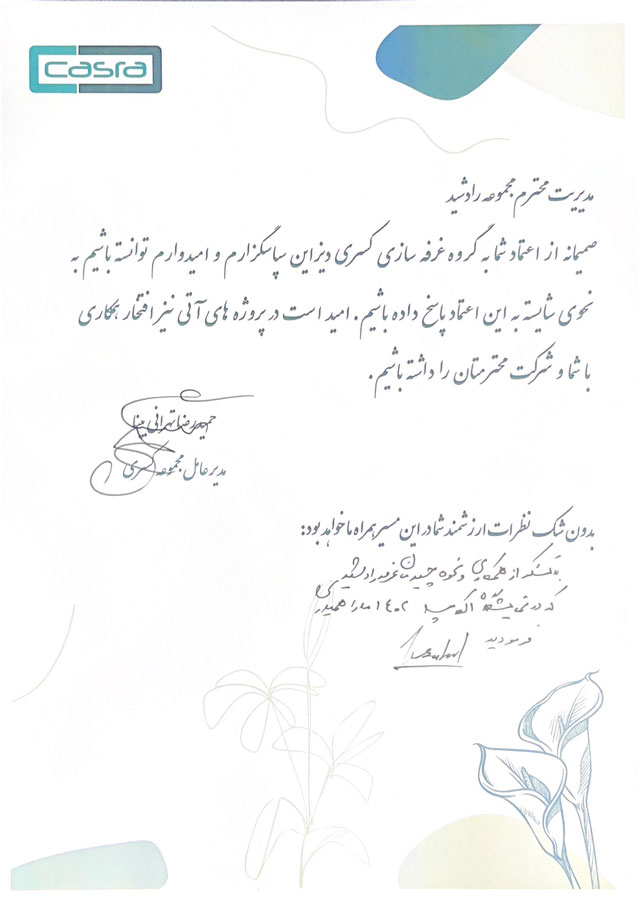 casra
مدیریت محترم مجموعه رادشید
صمیمانه از اعتماد شما به گروه غرفه سازی کسری دیزاین سپاسگزارم و امیدوارم توانسته باشیم به
نحوی شایسته به این اعتماد پاسخ داده باشیم. امید است در پروژه های آتی نیز افتخار همکاری
با شما و شرکت محترمتان را داشته باشیم.
حمیدرضا تهرانی مینا
مدیرعامل مجموعه کسری
بدون شک نظرات ارزشمند شما در این مسیر همراه ما خواهد بود:
با تشکر از همکاری و نحوه چیدمان غرفه رادشید
که در نمایشگاه ۱۴۰۲ ما را همیاری
فرمودید